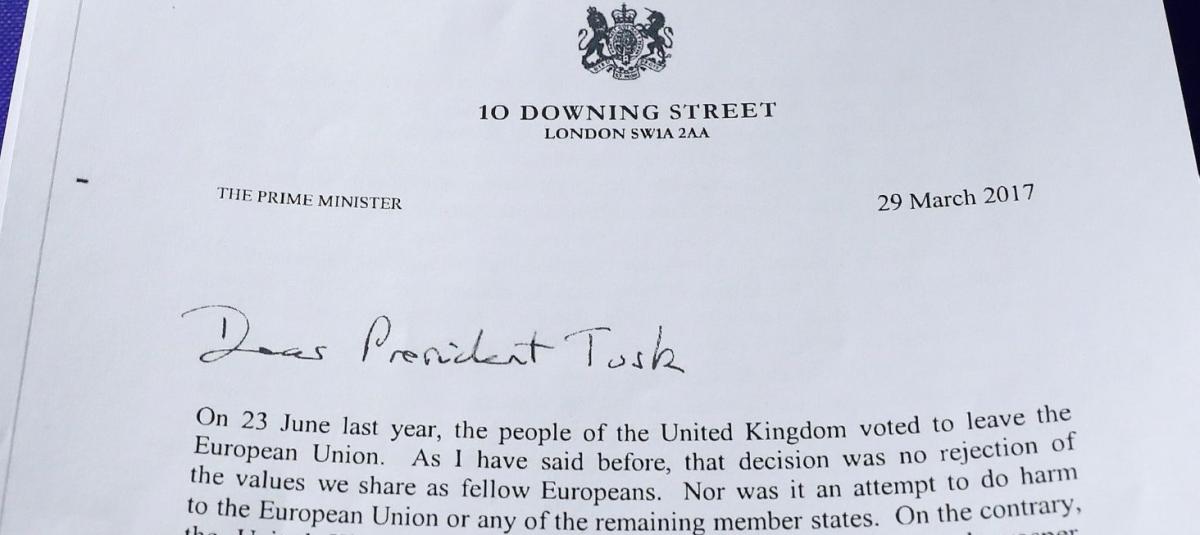 10 DOWNING STREET
LONDON SW1A 2AA
THE PRIME MINISTER
29 March 2017
Dear President Tusk
On 23 June last year, the people of the United Kingdom voted to leave the
European Union. As I have said before, that decision was no rejection of
the values we share as fellow Europeans. Nor was it an attempt to do harm
to the European Union or any of the remaining member states. On the contrary,